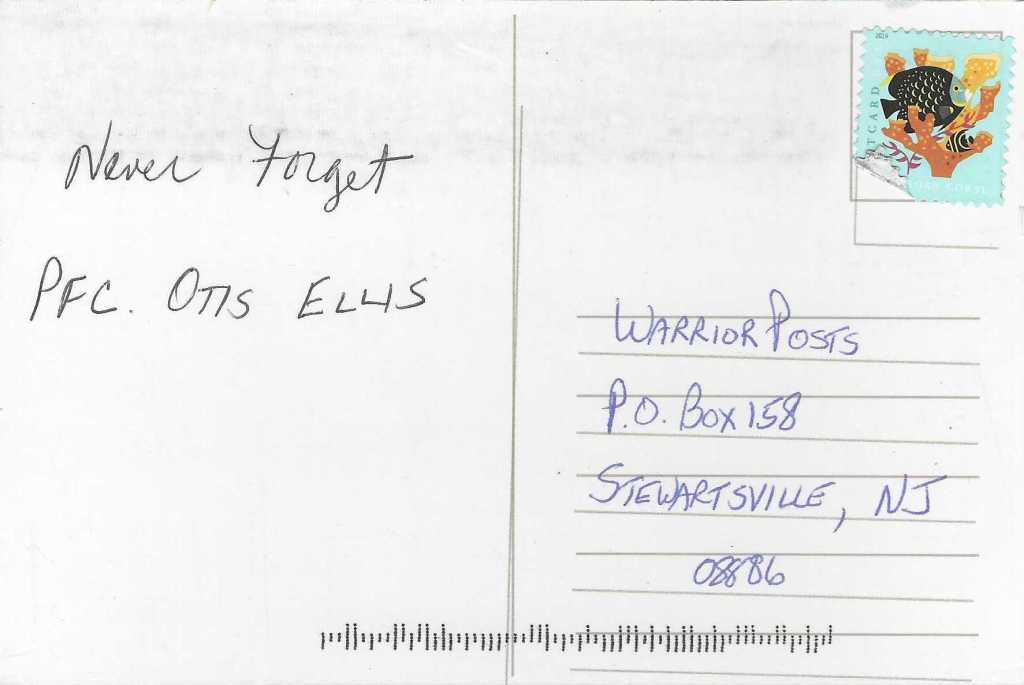 Never Forget
PFC. OTIS ELLIS
2019
POSTCARD
CORAL
WARRIOR POSTS
P.O. BOX 158
STEWARTSVILLE, NJ
08886